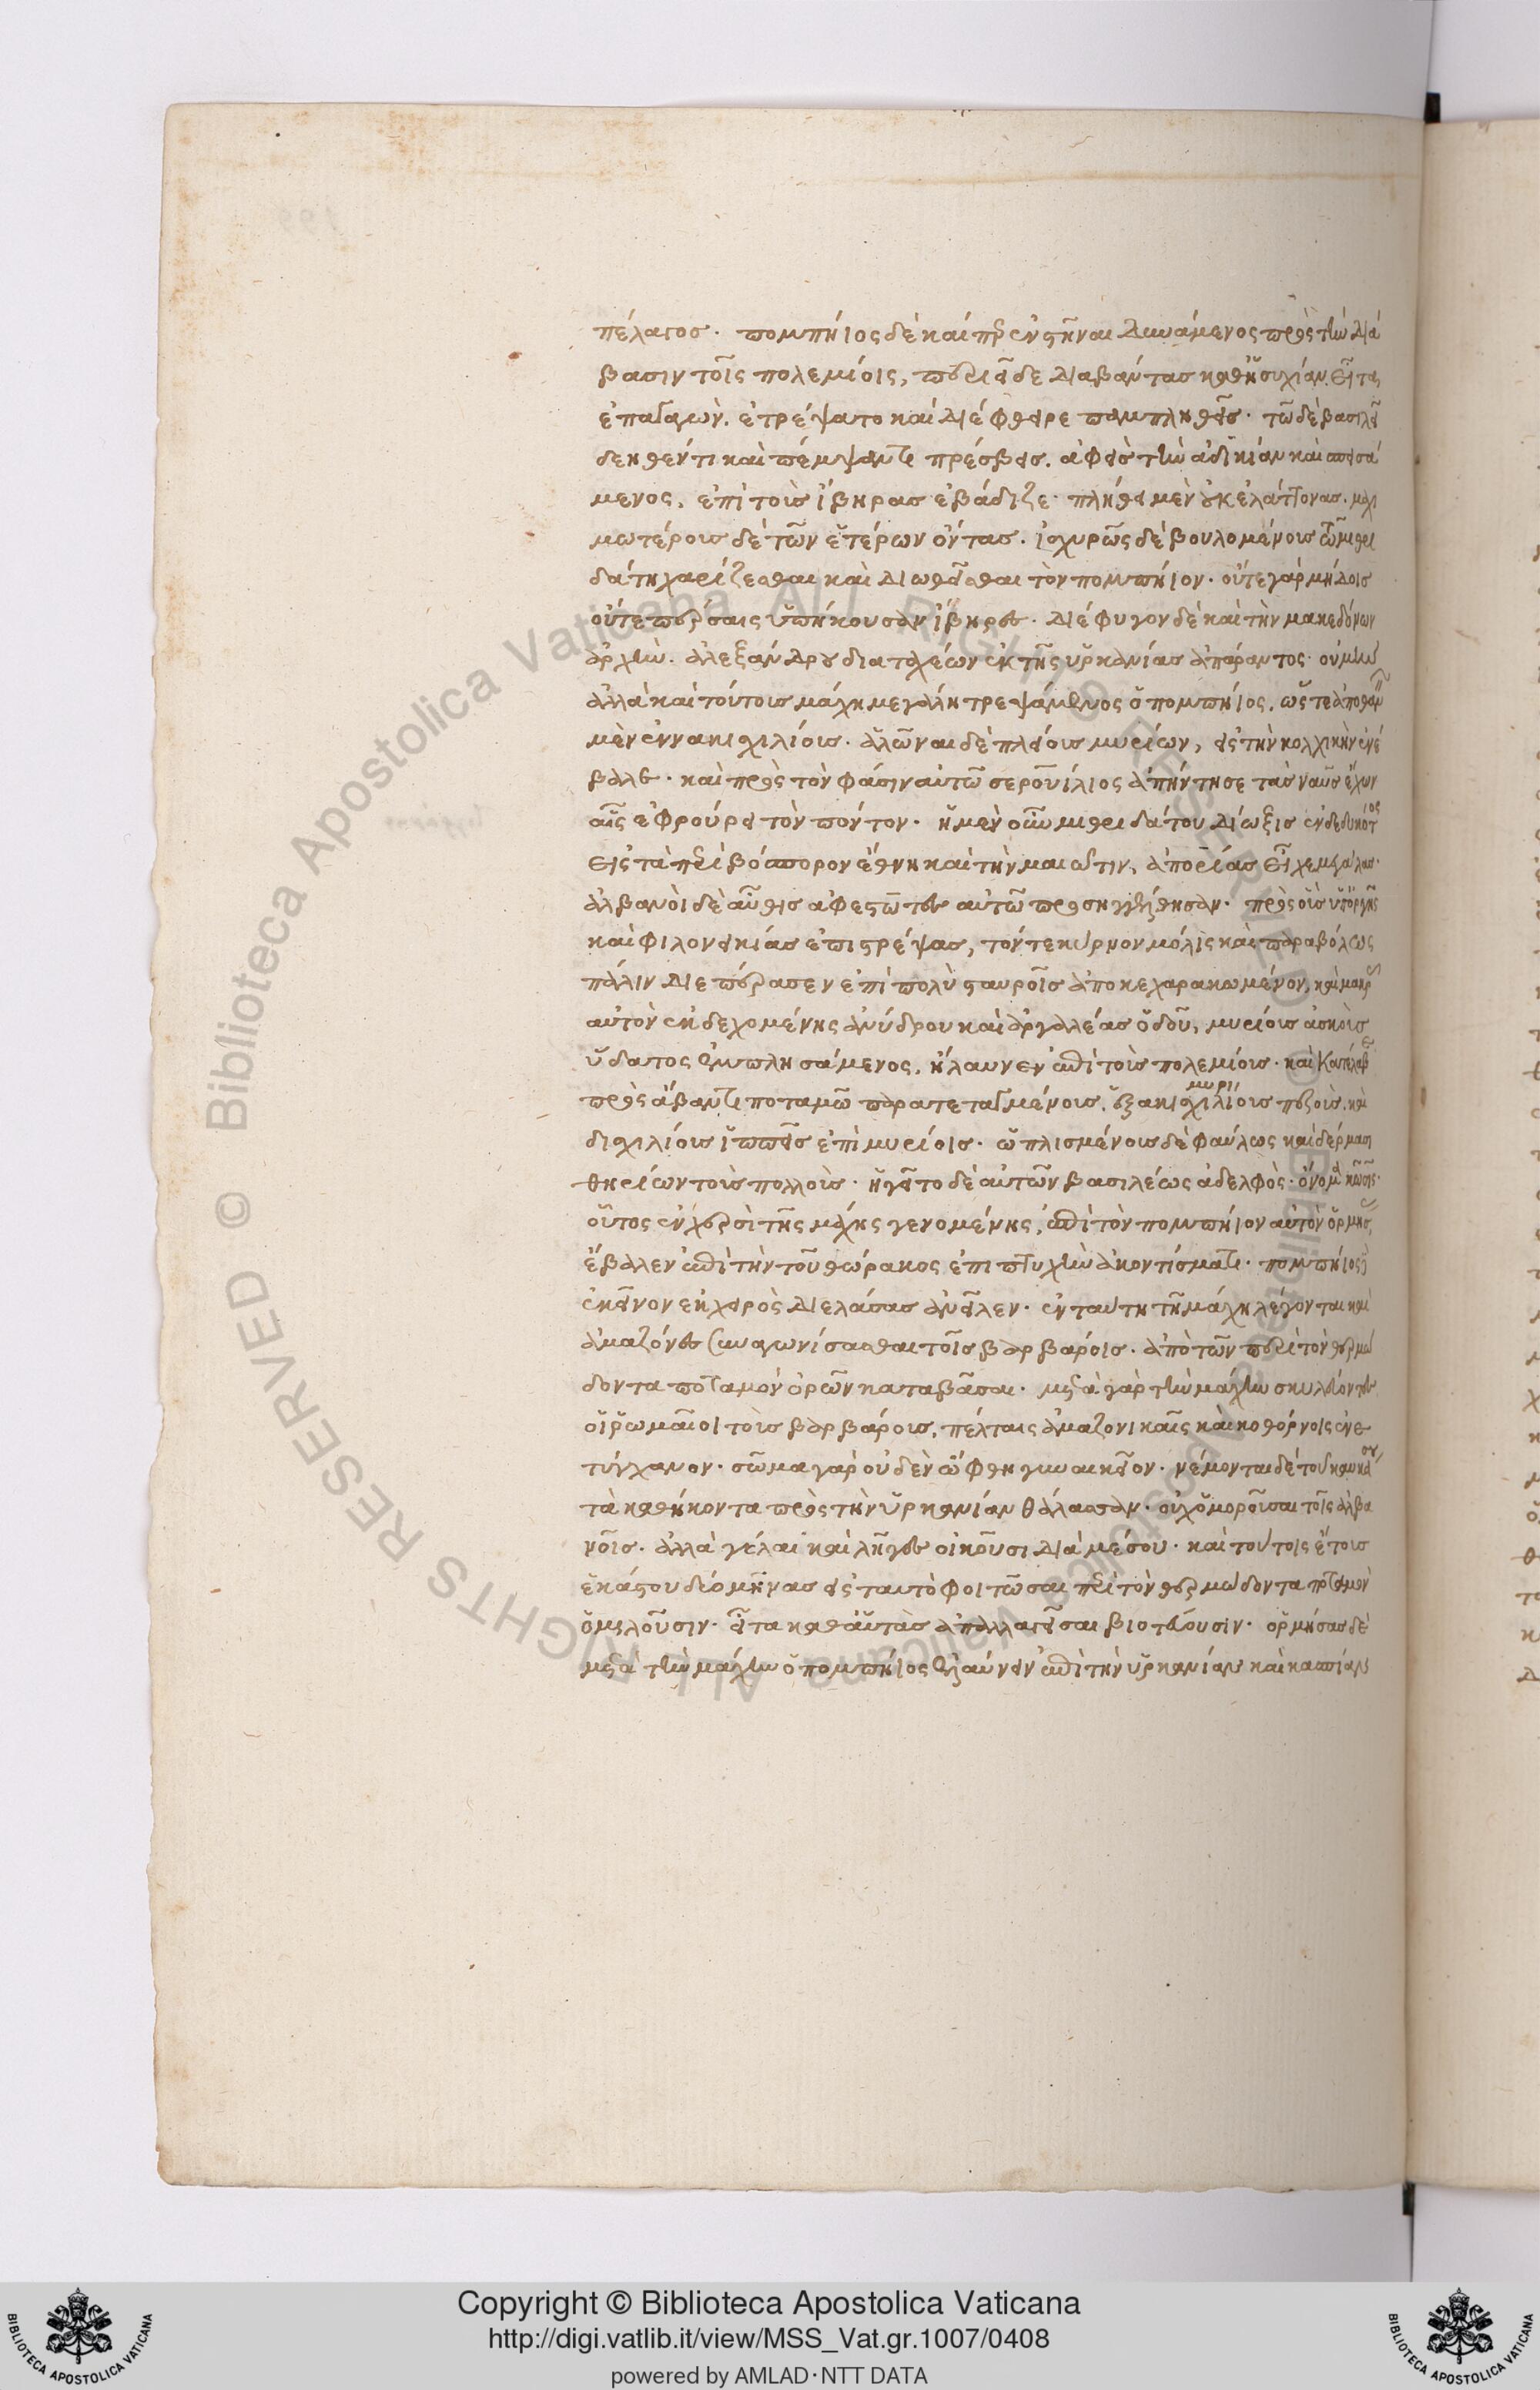 πέλαγος. πομπήιος δὲ καὶ περ ἐνστῆναι δυνάμενος πρὸς τὴν διά
βασιν τοῖς πολεμίοις, περιεῖδε διαβάντας καθ ἡσυχίαν. εἶτα
ἐπαγαγὼν, ἐτρέψατο καὶ διέφθειρε παμπληθεῖς. τῷ δὲ βασιλεῖ
δεηθέντι καὶ πέμψαντι πρέσβεις, ἀφεὶς τὴν ἀδικίαν καὶ σπεισά
μενος, ἐπὶ τοὺς ἴβηρας ἐβάδιζε. πλήθει μὲν οὐκ ἐλάττονας. μαχι
μωτέρους δὲ τῶν ἑτέρων ὄντας. ἰσχυρῶς δὲ βουλομένους τῷ μιθρι
δάτῃ χαρίζεσθαι καὶ διωθεῖσθαι τὸν πομπήιον. οὔτε γὰρ μήδοις
οὔτε πέρσαις ὑπήκουσαν ἴβηρες. διέφυγον δὲ καὶ τὴν μακεδόνων
ἀρχὴν. ἀλεξάνδρου διαταχέων ἐκ τῆς ὑρκανίας ἀπάραντος. οὐ μὴν
ἀλλὰ καὶ τούτους μάχῃ μεγάλῃ τρεψάμενος ὁ πομπήιος, ὥστε ἀποθανεῖν
μὲν ἐννακισχιλίους. ἁλῶναι δὲ πλείους μυρίων, εἰς τὴν κολχικὴν ἐνέ
βαλε. καὶ πρὸς τὸν φάσιν αὐτῷ σερουίλιος ἀπήντησε τὰς ναῦς ἔχων
αἷς ἐφρούρει τὸν πόντον. ἡ μὲν οὖν μιθριδάτου δίωξις ἐνδεδυκότος
εἰς τὰ περὶ βόσπορον ἔθνη καὶ τὴν μαιῶτιν, ἀπορίας εἶχε μεγάλας.
ἀλβανοὶ δὲ αὖθις ἀφεστῶτες αὐτῷ προσηγγέλθησαν. πρὸς οὓς ὑπ ὀργῆς
καὶ φιλονεικίας ἐπιστρέψας, τόν τε κύρνον μόλις καὶ παραβόλως
πάλιν διεπέρασεν ἐπὶ πολὺ σταυροῖς ἀποκεχαρακωμένον, καὶ μακρᾶς
αὐτὸν ἐκδεχομένης ἀνύδρου καὶ ἀργαλέας ὁδοῦ, μυρίους ἀσκοὺς
ὕδατος ἐμπλησάμενος, ἤλαυνεν ἐπὶ τοὺς πολεμίους. καὶ κατέλαβε
πρὸς ἄβαντι ποταμῷ παρατεταγμένους, ἑξακισμυριχιλίους πεζοὺς, καὶ
δισχιλίους ἱππεῖς ἐπὶ μυρίοις. ὡπλισμένους δὲ φαύλως καὶ δέρμασι
θηρίων τοὺς πολλοὺς. ἡγεῖτο δὲ αὐτῶν βασιλέως ἀδελφὸς. ὄνομα κῶσις.
οὗτος ἐν χερσὶ τῆς μάχης γενομένης, ἐπὶ τὸν πομπήιον αὐτὸν ὁρμήσας,
ἔβαλεν ἐπὶ τὴν τοῦ θώρακος ἐπιπτυχὴν ἀκοντίσματι. πομπήιος δὲ
ἐκεῖνον ἐκ χειρὸς διελάσας ἀνεῖλεν. ἐν ταύτῃ τῇ μάχῃ λέγονται καὶ
ἀμαζόνες συναγωνίσασθαι τοῖς βαρβάροις. ἀπὸ τῶν περὶ τὸν θερμώ
δοντα ποταμὸν ὀρῶν καταβᾶσαι. μετὰ γὰρ τὴν μάχην σκυλεύοντες
οἱ ῥωμαῖοι τοὺς βαρβάρους, πέλταις ἀμαζονικαῖς καὶ κοθόρνοις ἐνε
τύγχανον. σῶμα γὰρ οὐδὲν ὤφθη γυναικεῖον. νέμονται δὲ τοῦ καυκάσου
τὰ καθήκοντα πρὸς τὴν ὑρκανίαν θάλασσαν. οὐχ ὁμοροῦσαι τοῖς ἀλβα
νοῖς. ἀλλὰ γέλαι καὶ λῆγες οἰκοῦσι διὰ μέσου. καὶ τούτοις ἔτους
ἑκάστου δύο μῆνας εἰς ταυτὸ φοιτῶσαι περὶ τὸν θερμώδοντα ποταμὸν
ὁμιλοῦσιν. εἶτα καθ αὑτὰς ἀπαλλαγεῖσαι βιοτεύουσιν. ὁρμήσας δὲ
μετὰ τὴν μάχην ὁ πομπήιος ἐλαύνειν ἐπὶ τὴν ὑρκανίαν καὶ κασπίαν
Copyright © Biblioteca Apostolica Vaticana
http://digi.vatlib.it/view/MSS_Vat.gr.1007/0408
powered by AMLAD·NTT DATA
BIBLIOTECA APOSTOLICA VATICANA
BIBLIOTECA APOSTOLICA VATICANA
Biblioteca Apostolica Vaticana ALL RIGHTS RESERVED ©
Biblioteca Apostolica Vaticana ALL RIGHTS RESERVED ©